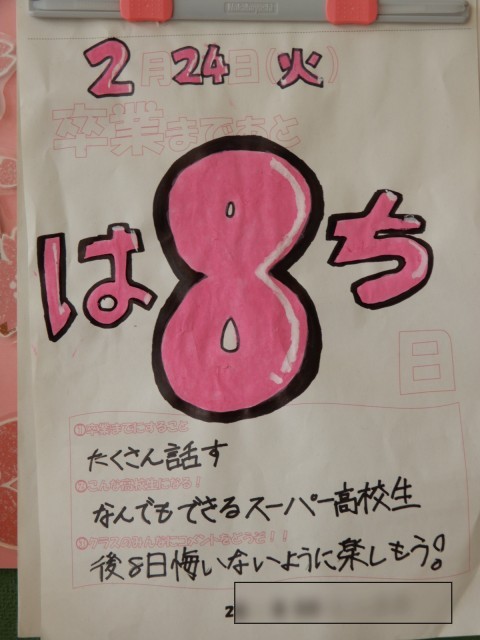 2月24日(火)
卒業まであと
は8ち
日
①卒業までにすること
たくさん話す
②こんな高校生になる!
なんでもできるスーパー高校生
③クラスのみんなにコメントをどうぞ!!
後8日悔いないように楽しもう!
2